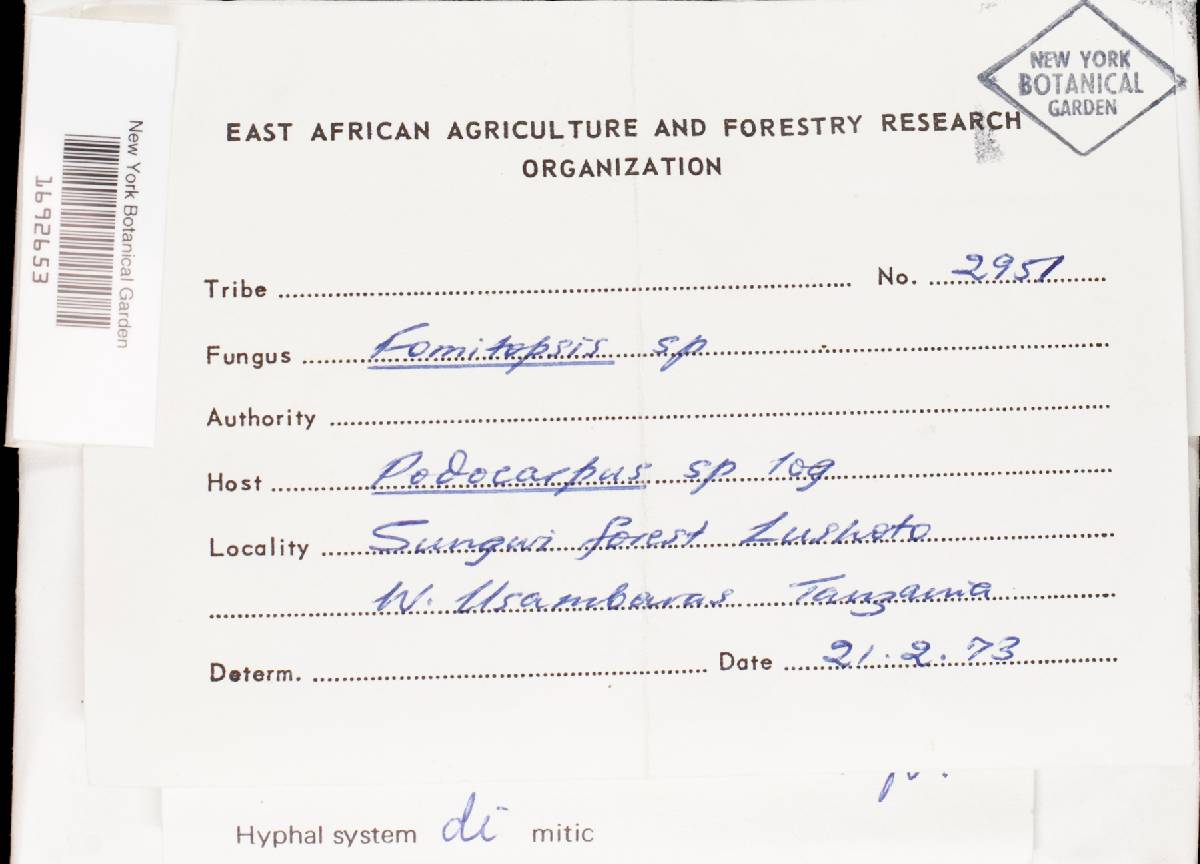 NEW YORK
BOTANICAL
GARDEN
EAST AFRICAN AGRICULTURE AND FORESTRY RESEARCH
ORGANIZATION
New York Botanical Garden
1692653
Tribe No. 2951
Fungus Fomitopsis sp
Authority
Host Podocarpus sp log
Locality Sungwi forest Lushoto
W. Usambaras Tanzania
Determ. Date 21.2.73
Hyphal system di mitic